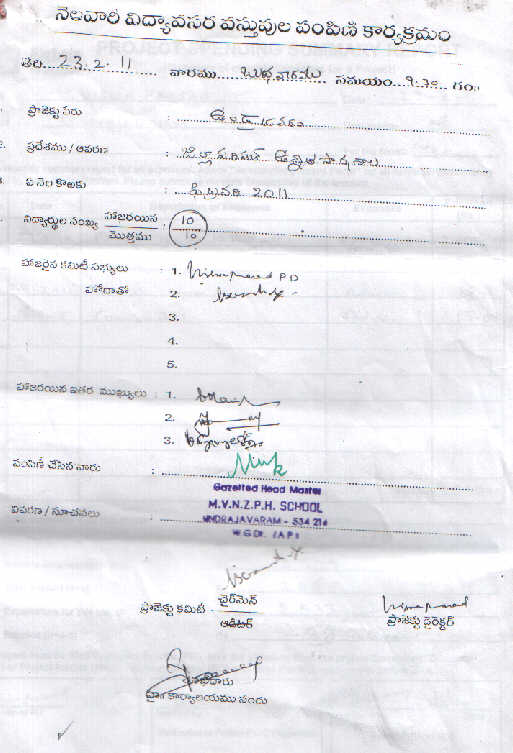 నెలవారీ విద్యావసర వస్తువుల పంపిణి కార్యక్రమం
తేది...23.2.11... వారము...బుధవారము... సమయం...9.30...గం॥
ప్రాజెక్టు పేరు : ఉండ్రాజవరం
ప్రదేశము / ఆవరణ : జిల్లా పరిషత్ ఉన్నత పాఠశాల
ఏ నెల కొఱకు : ఫిబ్రవరి 2011
విద్యార్థుల సంఖ్య హాజరయిన : 10
మొత్తము 10
హాజరైన కమిటీ సభ్యులు : 1. PD
హోదాతో 2.
3.
4.
5.
హాజరయిన ఇతర ముఖ్యులు : 1.
2.
3.
పంపిణీ చేసిన వారు :
Gazetted Head Master
M.V.N.Z.P.H. SCHOOL
UNDRAJAVARAM - 534 216
W.G.Dt. (A.P)
వివరణ / సూచనలు :
ప్రాజెక్టు కమిటీ - ఛైర్‌మెన్
ఆడిటర్
ప్రాజెక్టు డైరెక్టర్
ప్రాంత కార్యాలయము వారు